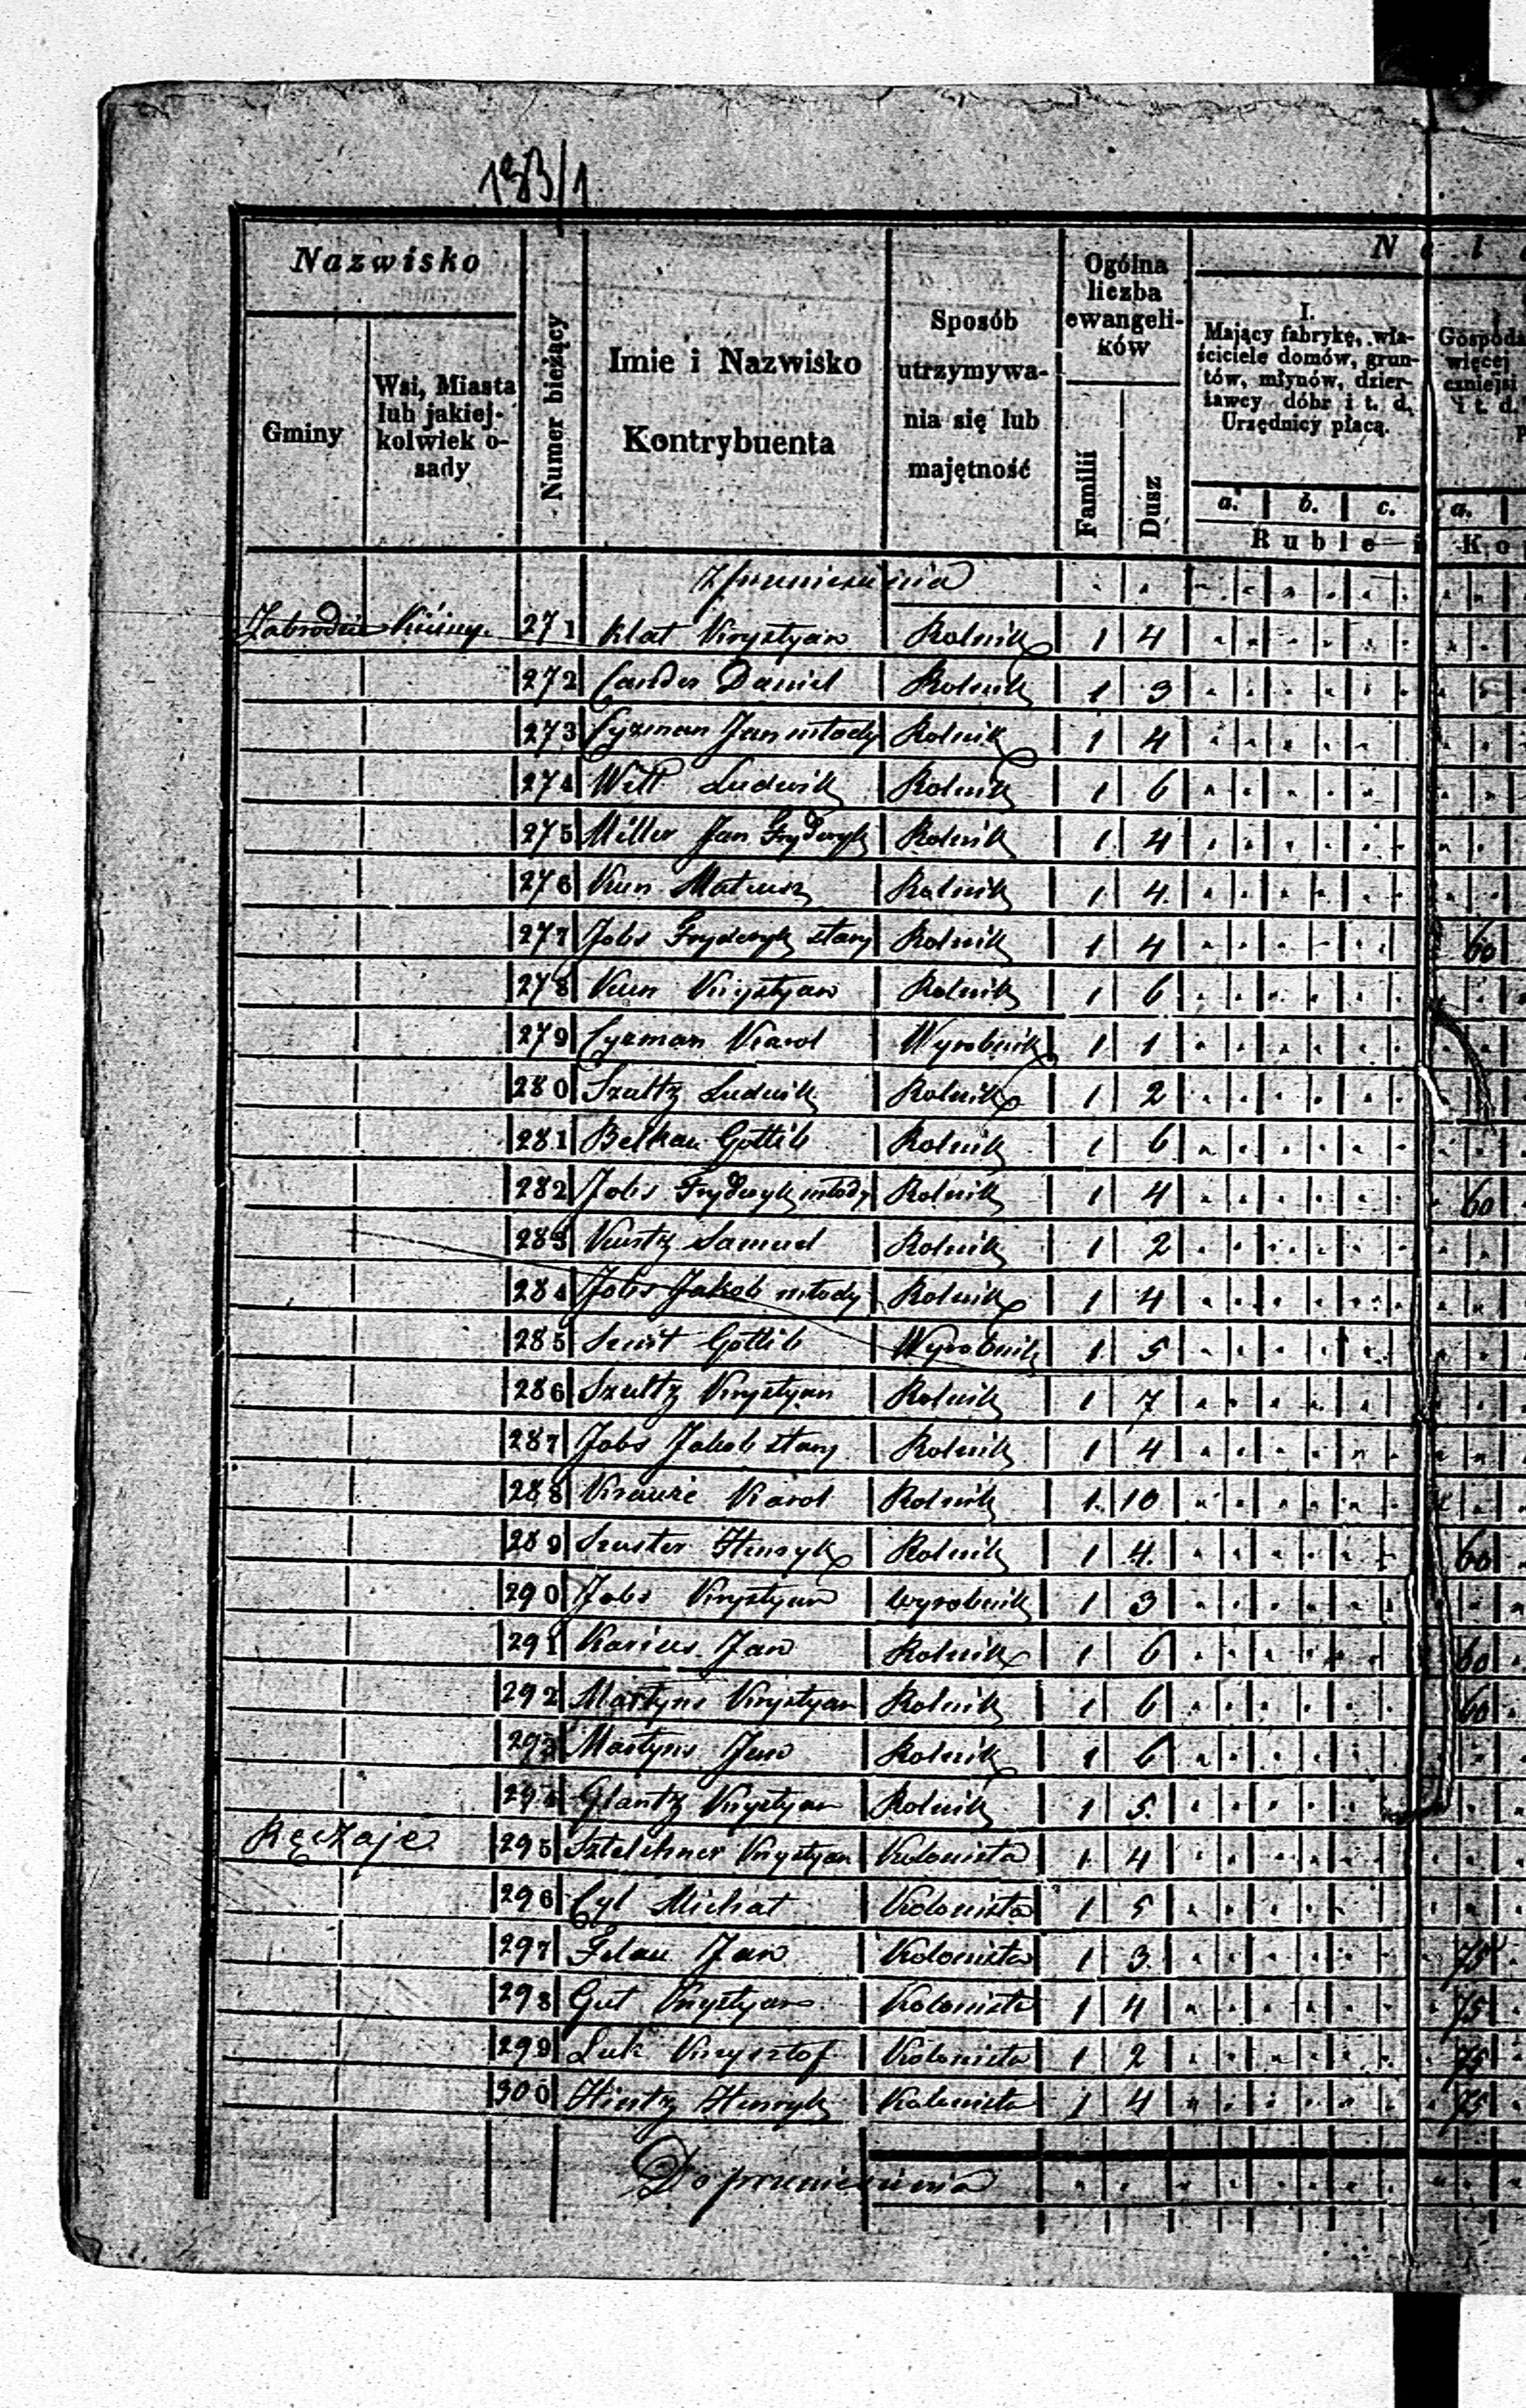 183/1
Nazwisko
Gminy
Wsi, Miasta lub jakiej-kolwiek o-sady
Numer bieżący
Imie i Nazwisko Kontrybuenta
Sposób utrzymywa-nia się lub majętność
Ogólna liczba ewangeli-ków
Familii
Dusz
I. Mający fabrykę, wła-ściciele domów, grun-tów, młynów, dzier-żawcy dóbr i t. d. Urzędnicy płacą.
a. b. c. a.
Ruble i Ko
Z przeniesienia
Zabrodzie 271 Klat Krystyan Rolnik 1 4
272 Daniel Rolnik 1 3
273 Cyzman Jan młody Rolnik 1 4
274 Witt Ludwik Rolnik 1 6
275 Miller Jan Fryderyk Rolnik 1 4
276 Kun Mateusz Rolnik 1 4
277 Jobs Fryderyk stary Rolnik 1 4 60
278 Kun Krystyan Rolnik 1 6
279 Cyzman Karol Wyrobnik 1 1
280 Szultz Ludwik Rolnik 1 2
281 Belkau Gotlib Rolnik 1 6
282 Jobs Fryderyk młody Rolnik 1 4 60
283 Samuel Rolnik 1 2
284 Jobs Jakob młody Rolnik 1 4
285 Gotlib Wyrobnik 1 5
286 Szultz Krystyan Rolnik 1 7
287 Jobs Jakob stary Rolnik 1 4
288 Krauze Karol Rolnik 1 10
289 Szuster Henryk Rolnik 1 4 60
290 Jobs Krystyan wyrobnik 1 3
291 Karius Jan Rolnik 1 6 60
292 Martyns Krystyan Rolnik 1 6 60
293 Martyns Jan Rolnik 1 6
294 Glantz Krystyan Rolnik 1 5
Ręczaje 295 Krystyan Kolonista 1 4
296 Cyl Michał Kolonista 1 5
297 Felau Jan Kolonista 1 3 75
298 Gut Krystyan Kolonista 1 4 75
299 Luk Krzysztof Kolonista 1 2 75
300 Hintz Henryk Kolonista 1 4 75
Do przeniesienia